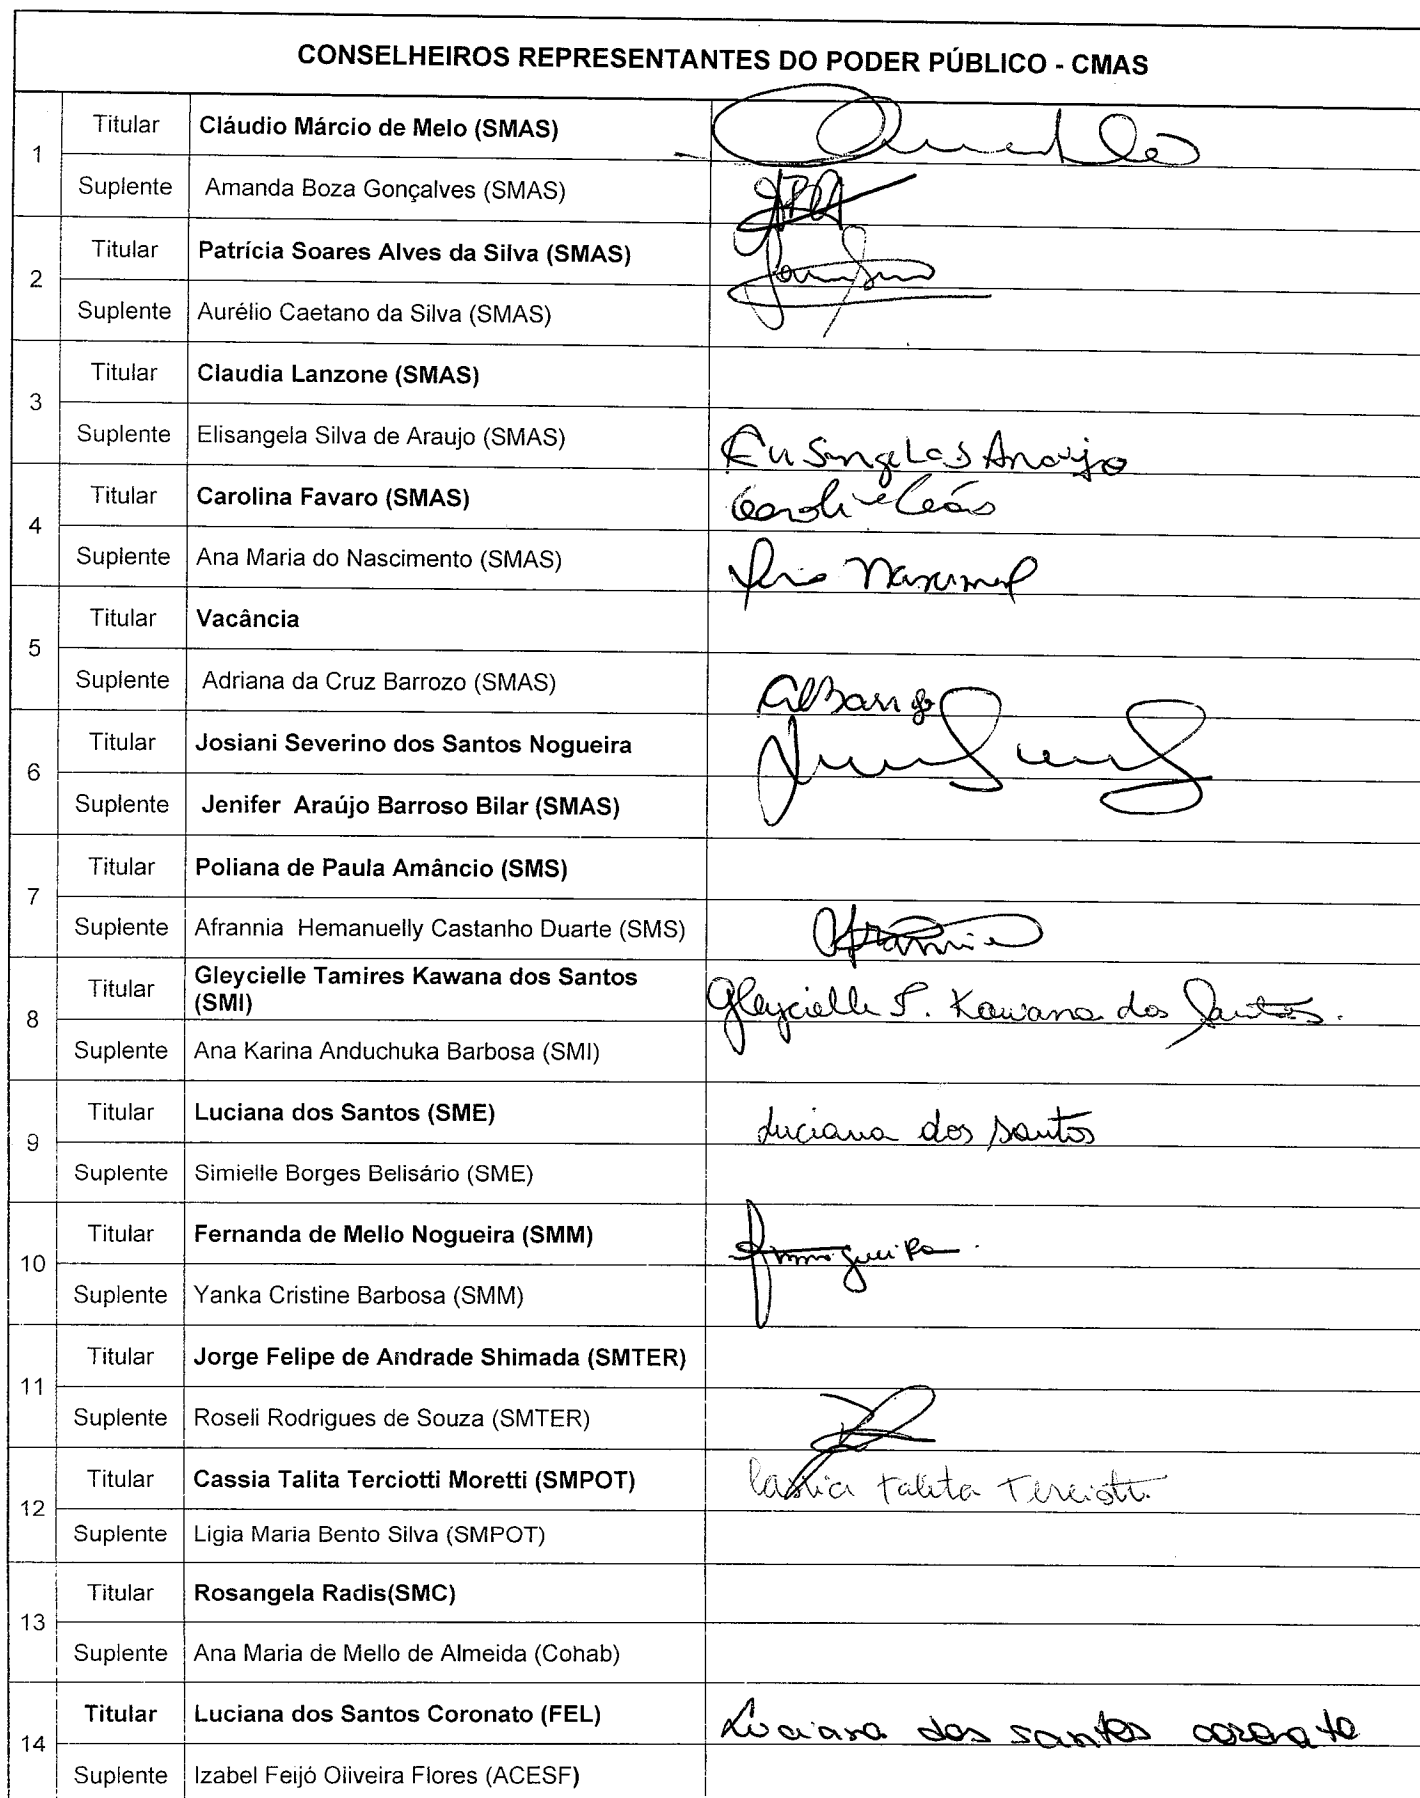 CONSELHEIROS REPRESENTANTES DO PODER PÚBLICO - CMAS
1
Titular Cláudio Márcio de Melo (SMAS)
Suplente Amanda Boza Gonçalves (SMAS)
2
Titular Patrícia Soares Alves da Silva (SMAS)
Suplente Aurélio Caetano da Silva (SMAS)
3
Titular Claudia Lanzone (SMAS)
Suplente Elisangela Silva de Araujo (SMAS) Araujo
4
Titular Carolina Favaro (SMAS)
Suplente Ana Maria do Nascimento (SMAS)
5
Titular Vacância
Suplente Adriana da Cruz Barrozo (SMAS)
6
Titular Josiani Severino dos Santos Nogueira
Suplente Jenifer Araújo Barroso Bilar (SMAS)
7
Titular Poliana de Paula Amâncio (SMS)
Suplente Afrannia Hemanuelly Castanho Duarte (SMS) Afrannia
8
Titular Gleycielle Tamires Kawana dos Santos
(SMI) Gleycielle T. Kawana dos Santos.
Suplente Ana Karina Anduchuka Barbosa (SMI)
9
Titular Luciana dos Santos (SME) Luciana dos Santos
Suplente Simielle Borges Belisário (SME)
10
Titular Fernanda de Mello Nogueira (SMM)
Suplente Yanka Cristine Barbosa (SMM)
11
Titular Jorge Felipe de Andrade Shimada (SMTER)
Suplente Roseli Rodrigues de Souza (SMTER)
12
Titular Cassia Talita Terciotti Moretti (SMPOT) Cassia Talita Terciotti
Suplente Ligia Maria Bento Silva (SMPOT)
13
Titular Rosangela Radis(SMC)
Suplente Ana Maria de Mello de Almeida (Cohab)
14
Titular Luciana dos Santos Coronato (FEL) Luciana dos santos coronato
Suplente Izabel Feijó Oliveira Flores (ACESF)